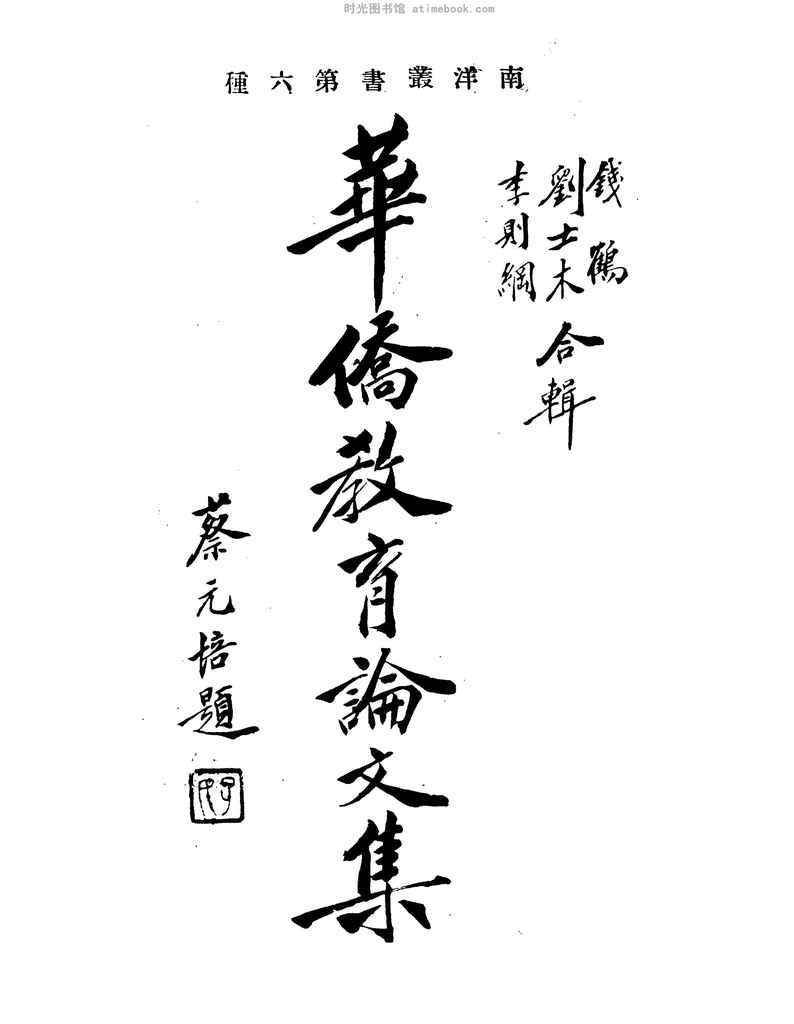 时光图书馆 atimebook.com
南洋叢書第六種
錢鶴
劉士木
李則綱
合輯
華僑教育論文集
蔡元培題